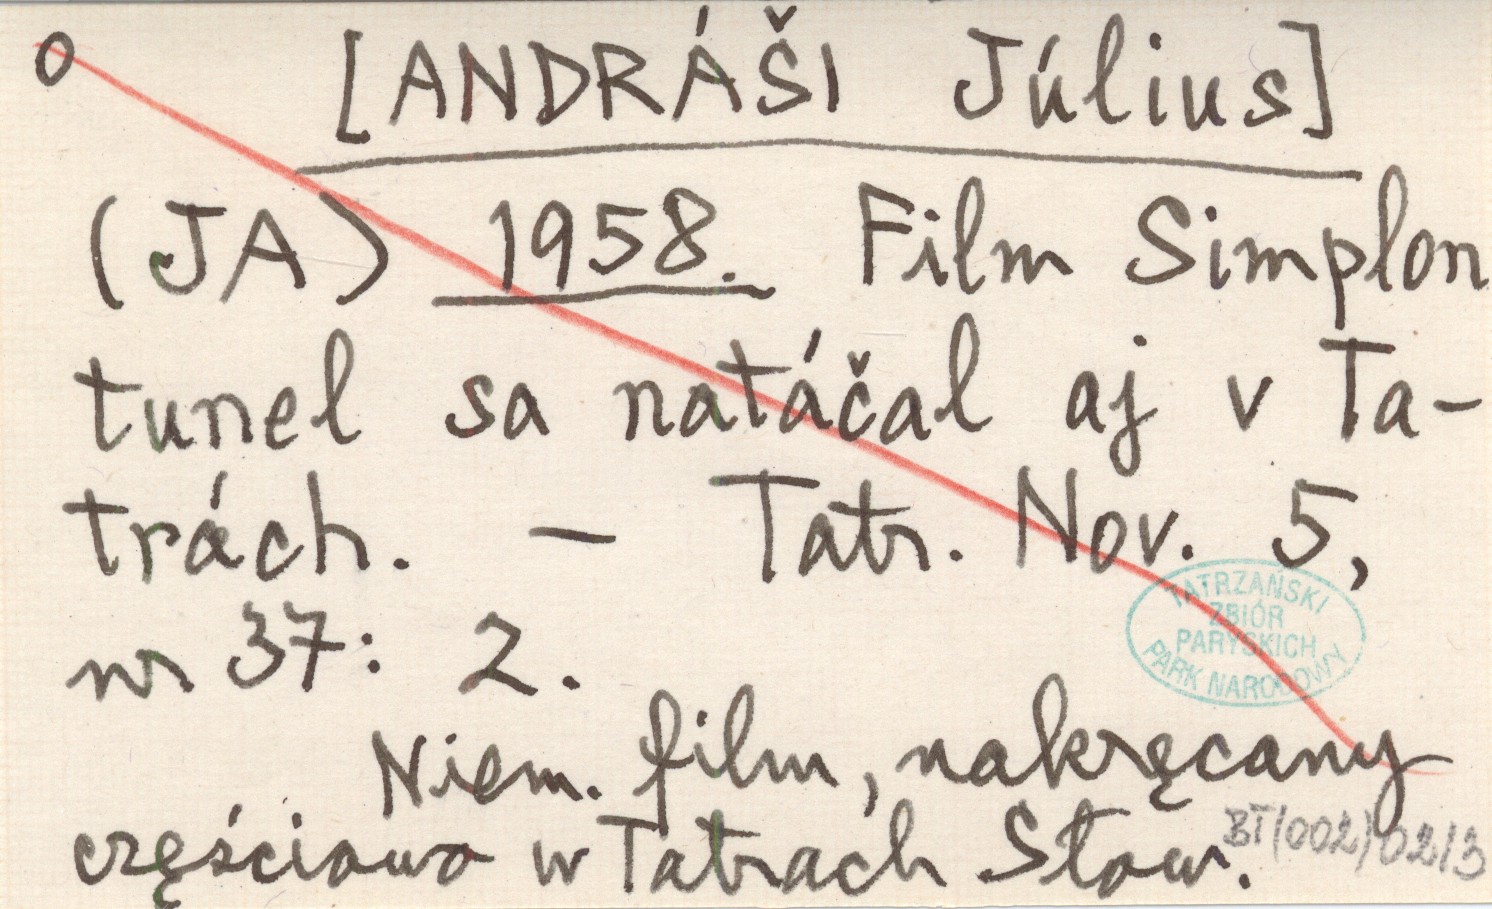 o [ANDRÁŠI Július]
(JA) 1958. Film Simplon
tunel sa natáčal aj v Ta-
trách. — Tatr. Nov. 5,
nr 37: 2.
TATRZAŃSKI
ZBIÓR
PARYSKICH
PARK NARODOWY
Niem. film, nakręcany
częściowo w Tatrach Słow.
BT/002/02/3